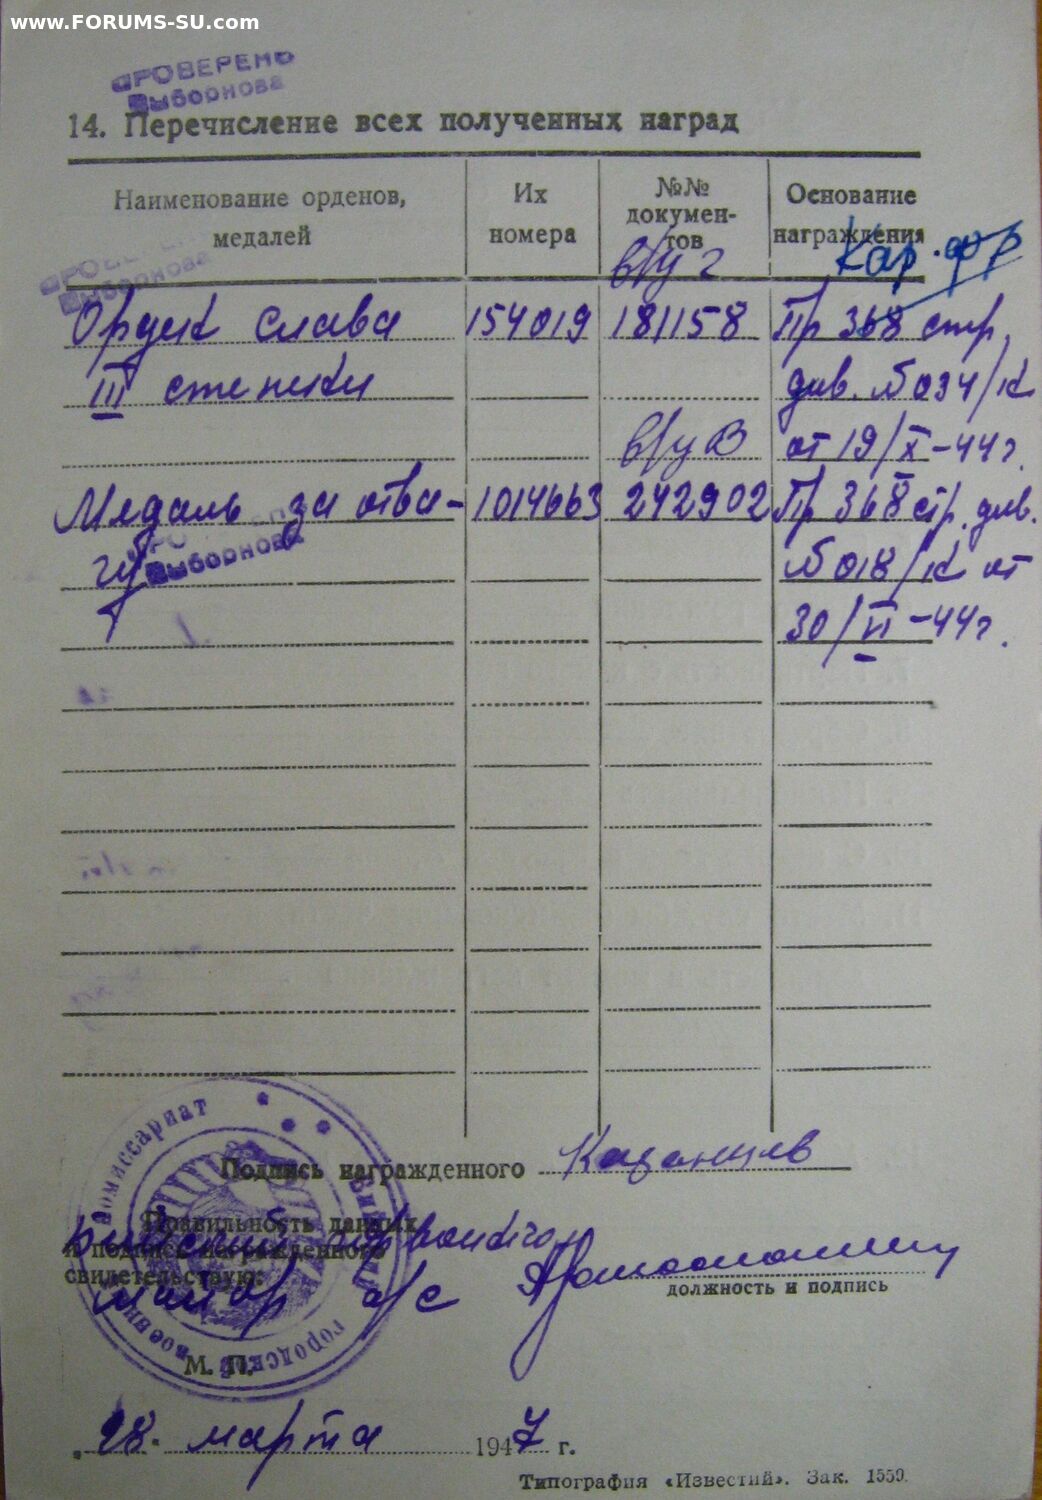 www.FORUMS-SU.com
ПРОВЕРЕНО
Выборнова
14. Перечисление всех полученных наград
Наименование орденов, медалей
Их номера
№№ докумен-тов
Основание награждения
Кар. фр
в/у г
ПРОВЕРЕНО
Выборнова
Орден слава 154019 181158 Пр 368 стр.
III степени див. №034/К
в/у В от 19/X-44г.
Медаль за отва- 1014663 242902 Пр 368 стр. див.
гу №018/К от
Выборнова
30/VI-44г.
Подпись награжденного Казанцев
Правильность данных
и подпись награжденного
свидетельствую:
Бийский горвоенком
майор а/с
должность и подпись
комиссариат
Бийский
городской
военный
М. П.
„28" марта 1947 г.
Типография «Известий». Зак. 1559.